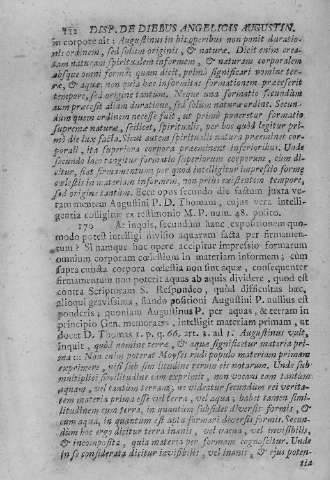 112 DISP. DE DIEBUS ANGELICIS AUGUSTIN.
in corpore ait: Augustinus in his operibus non ponit duratio-
nis ordinem, sed solum originis, & naturæ. Dicit enim crea-
tam naturam spiritualem informem, & naturam corporalem
absque omni formis quam dicit, primo significari nomine ter-
ræ, & aquæ: non quia hæc informitas formationem præcesserit
tempore, sed origine tantum. Neque una formatio secundum
eum præcessit aliam duratione, sed solum naturæ ordine. Secun-
dum quem ordinem necesse fuit, ut primo poneretur formatio
supremæ naturæ, scilicet, spiritualis, per hoc quod legitur pri-
mo die lux facta. Sicut autem spiritualis natura præeminet cor-
porali, ita superiora corpora præeminent inferioribus. Unde
secundo loco tangitur formatio superiorum corporum, cùm di-
citur, fiat firmamentum per quod intelligitur impressio formæ
cœlestis in materiam informem, non prius existentem tempore,
sed origine tantum. Ecce opus secundo die factum juxta ve-
ram mentem Augustini P. D. Thomam, cujus vera intelli-
gentia colligitur ex testimonio M. P. num. 48. posito.
170 At inquis, secundum hanc expositionem quo-
modo potest intelligi divisio aquarum facta per firmamen-
tum? Si namque hoc opere accipitur impressio formarum
omnium corporum cœlestium in materiam informem; cum
supra cuncta corpora cœlestia non sint aquæ, consequenter
firmamentum non poterit aquas ab aquis dividere, quod est
contra Scripturam S. Respondeo, quod difficultas hæc,
alioqui gravissima, stando positioni Augustini P. nullius est
ponderis; quoniam Augustinus P. per aquas, & terram in
principio Gen. memoratas, intelligit materiam primam, ut
docet D. Thomas 1. p. q. 66. art. 1. ad 1. Augustinus vult,
inquit, quod nomine terræ, & aquæ significetur materia pri-
ma: Non enim poterat Moyses rudi populo materiam primam
exprimere, nisi sub similitudine rerum eis notarum. Unde sub
multiplici similitudine eam exprimit, non vocans eam tantùm
aquam, vel tantùm terram, ne videatur secundum rei verita-
tem materia prima esse vel terra, vel aqua; habet tamen simi-
litudinem cum terra, in quantum subsidet diversis formis, &
cum aqua, in quantum est apta formari diversis formis. Secun-
dum hoc ergo dicitur terra inanis, vel vacua, vel invisibilis,
& incomposita, quia materia per formam cognoscitur. Unde
in se considerata dicitur invisibilis, vel inanis, & ejus poten-
tia